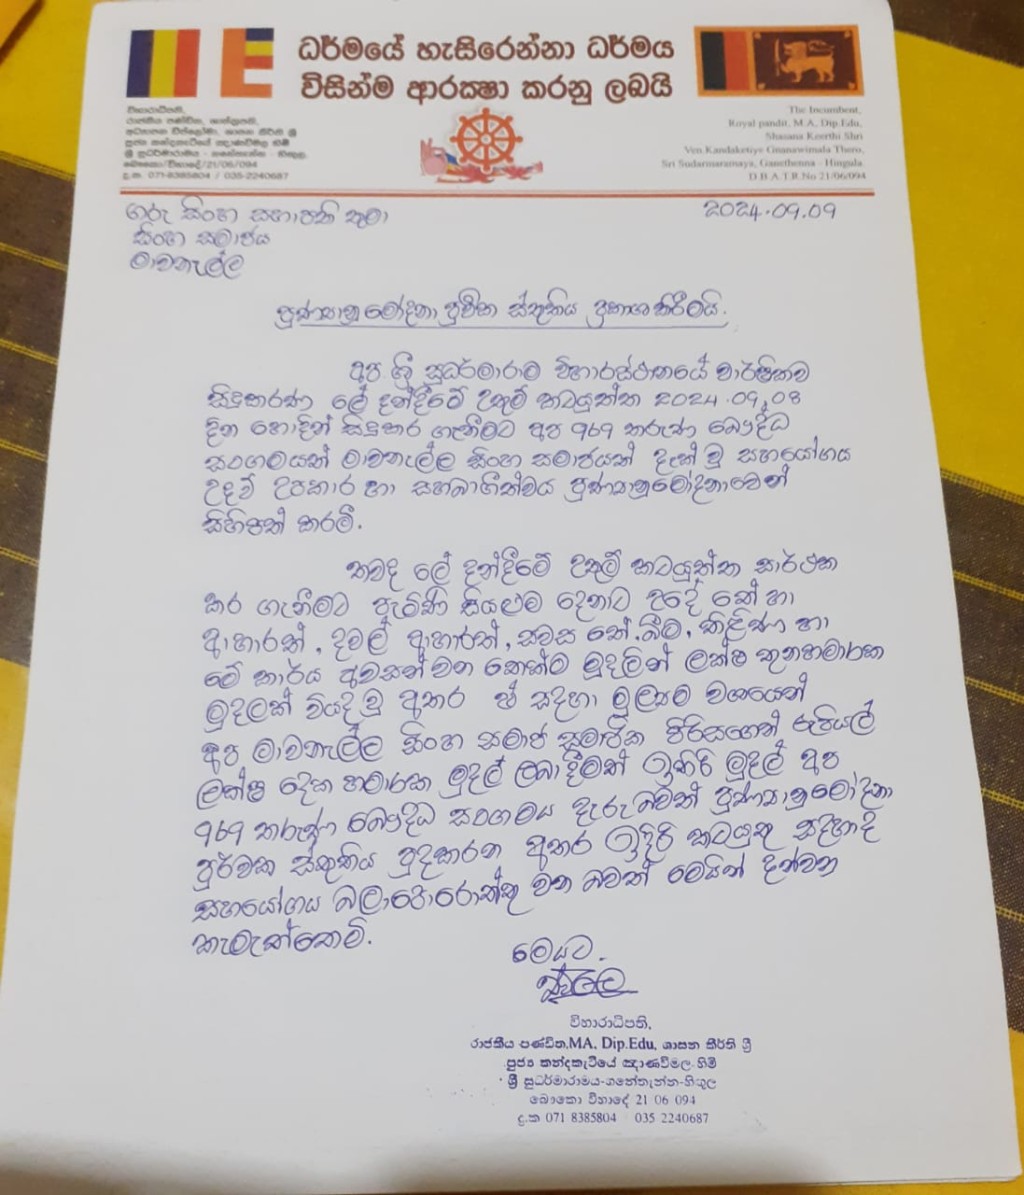 ධර්මයේ හැසිරෙන්නා ධර්මය
විසින්ම ආරක්‍ෂා කරනු ලබයි
විහාරාධිපති,
රාජකීය පණ්ඩිත, ශාස්ත්‍රපති,
අධ්‍යාපන ඩිප්ලෝමා, ශාසන කීර්ති ශ්‍රී
පූජ්‍ය කන්දකැටියේ ඤාණවිමල හිමි
ශ්‍රී සුධර්මාරාමය - ගනේතැන්න - හිඟුල.
බෞකො/විහාදේ/21/06/094
දු.ක. 071-8385804 / 035-2240687
The Incumbent,
Royal pandit, M.A, Dip.Edu,
Shasana Keerthi Shri
Ven.Kandaketiye Gnanawimala Thero,
Sri Sudarmaramaya, Ganethenna - Hingula.
D.B.A.T.R.No 21/06/094
ගරු සිංහ සභාපති තුමා
සිංහ සමාජය
මාවනැල්ල
2024.09.09
පුණ්‍යානුමෝදනා පූර්වක ස්තූතිය ප්‍රකාශ කිරීමයි.
අප ශ්‍රී සුධර්මාරාම විහාරස්ථානයේ වාර්ෂිකව
සිදුකරණ ලේ දන්දීමේ උතුම් කටයුත්ත 2024.09.08
දින හොදින් සිදුකර ගැනීමට අප 969 තරුණ බෞද්ධ
සංගමයත් මාවනැල්ල සිංහ සමාජයත් දැක් වූ සහයෝගය
උදව් උපකාර හා සහභාගීත්වය පුණ්‍යානුමෝදනාවෙන්
සිහිපත් කරමි.
තවද ලේ දන්දීමේ උතුම් කටයුත්ත සාර්ථක
කර ගැනීමට පැමිණි සියළුම දෙනාට උදේ තේ හා
ආහාරත්, දවල් ආහාරත්, සවස තේ.බීම, කිළිණ හා
මේ කාර්ය අවසන් වන තෙක්ම මුදලින් ලක්ෂ තුනහමාරක
මුදලක් වියදවූ අතර ඒ සදහා මූල්‍යම වශයෙන්
අප මාවනැල්ල සිංහ සමාජ සමාජික පිරිසගෙන් රුපියල්
ලක්ෂ දෙක හමාරක මුදල් ලබාදීමත් ඉතිරි මුදල් අප
969 තරුණ බෞද්ධ සංගමය දැරූ බවත් පුණ්‍යානුමෝදනා
පූර්වක ස්තුතිය පුදකරන අතර ඉදිරි කටයුතු සදහාද
සහයෝගය බලාපොරොත්තු වන බවත් මෙයින් දන්වනු
කැමැත්තෙමි.
මෙයට.
විහාරාධිපති,
රාජකීය පණ්ඩිත,MA, Dip.Edu, ශාසන කීර්ති ශ්‍රී
පූජ්‍ය කන්දකැටියේ ඤාණවිමල හිමි
ශ්‍රී සුධර්මාරාමය-ගනේතැන්න-හිඟුල
බෞකො විහාදේ 21 06 094
දු.ක 071 8385804 035 2240687